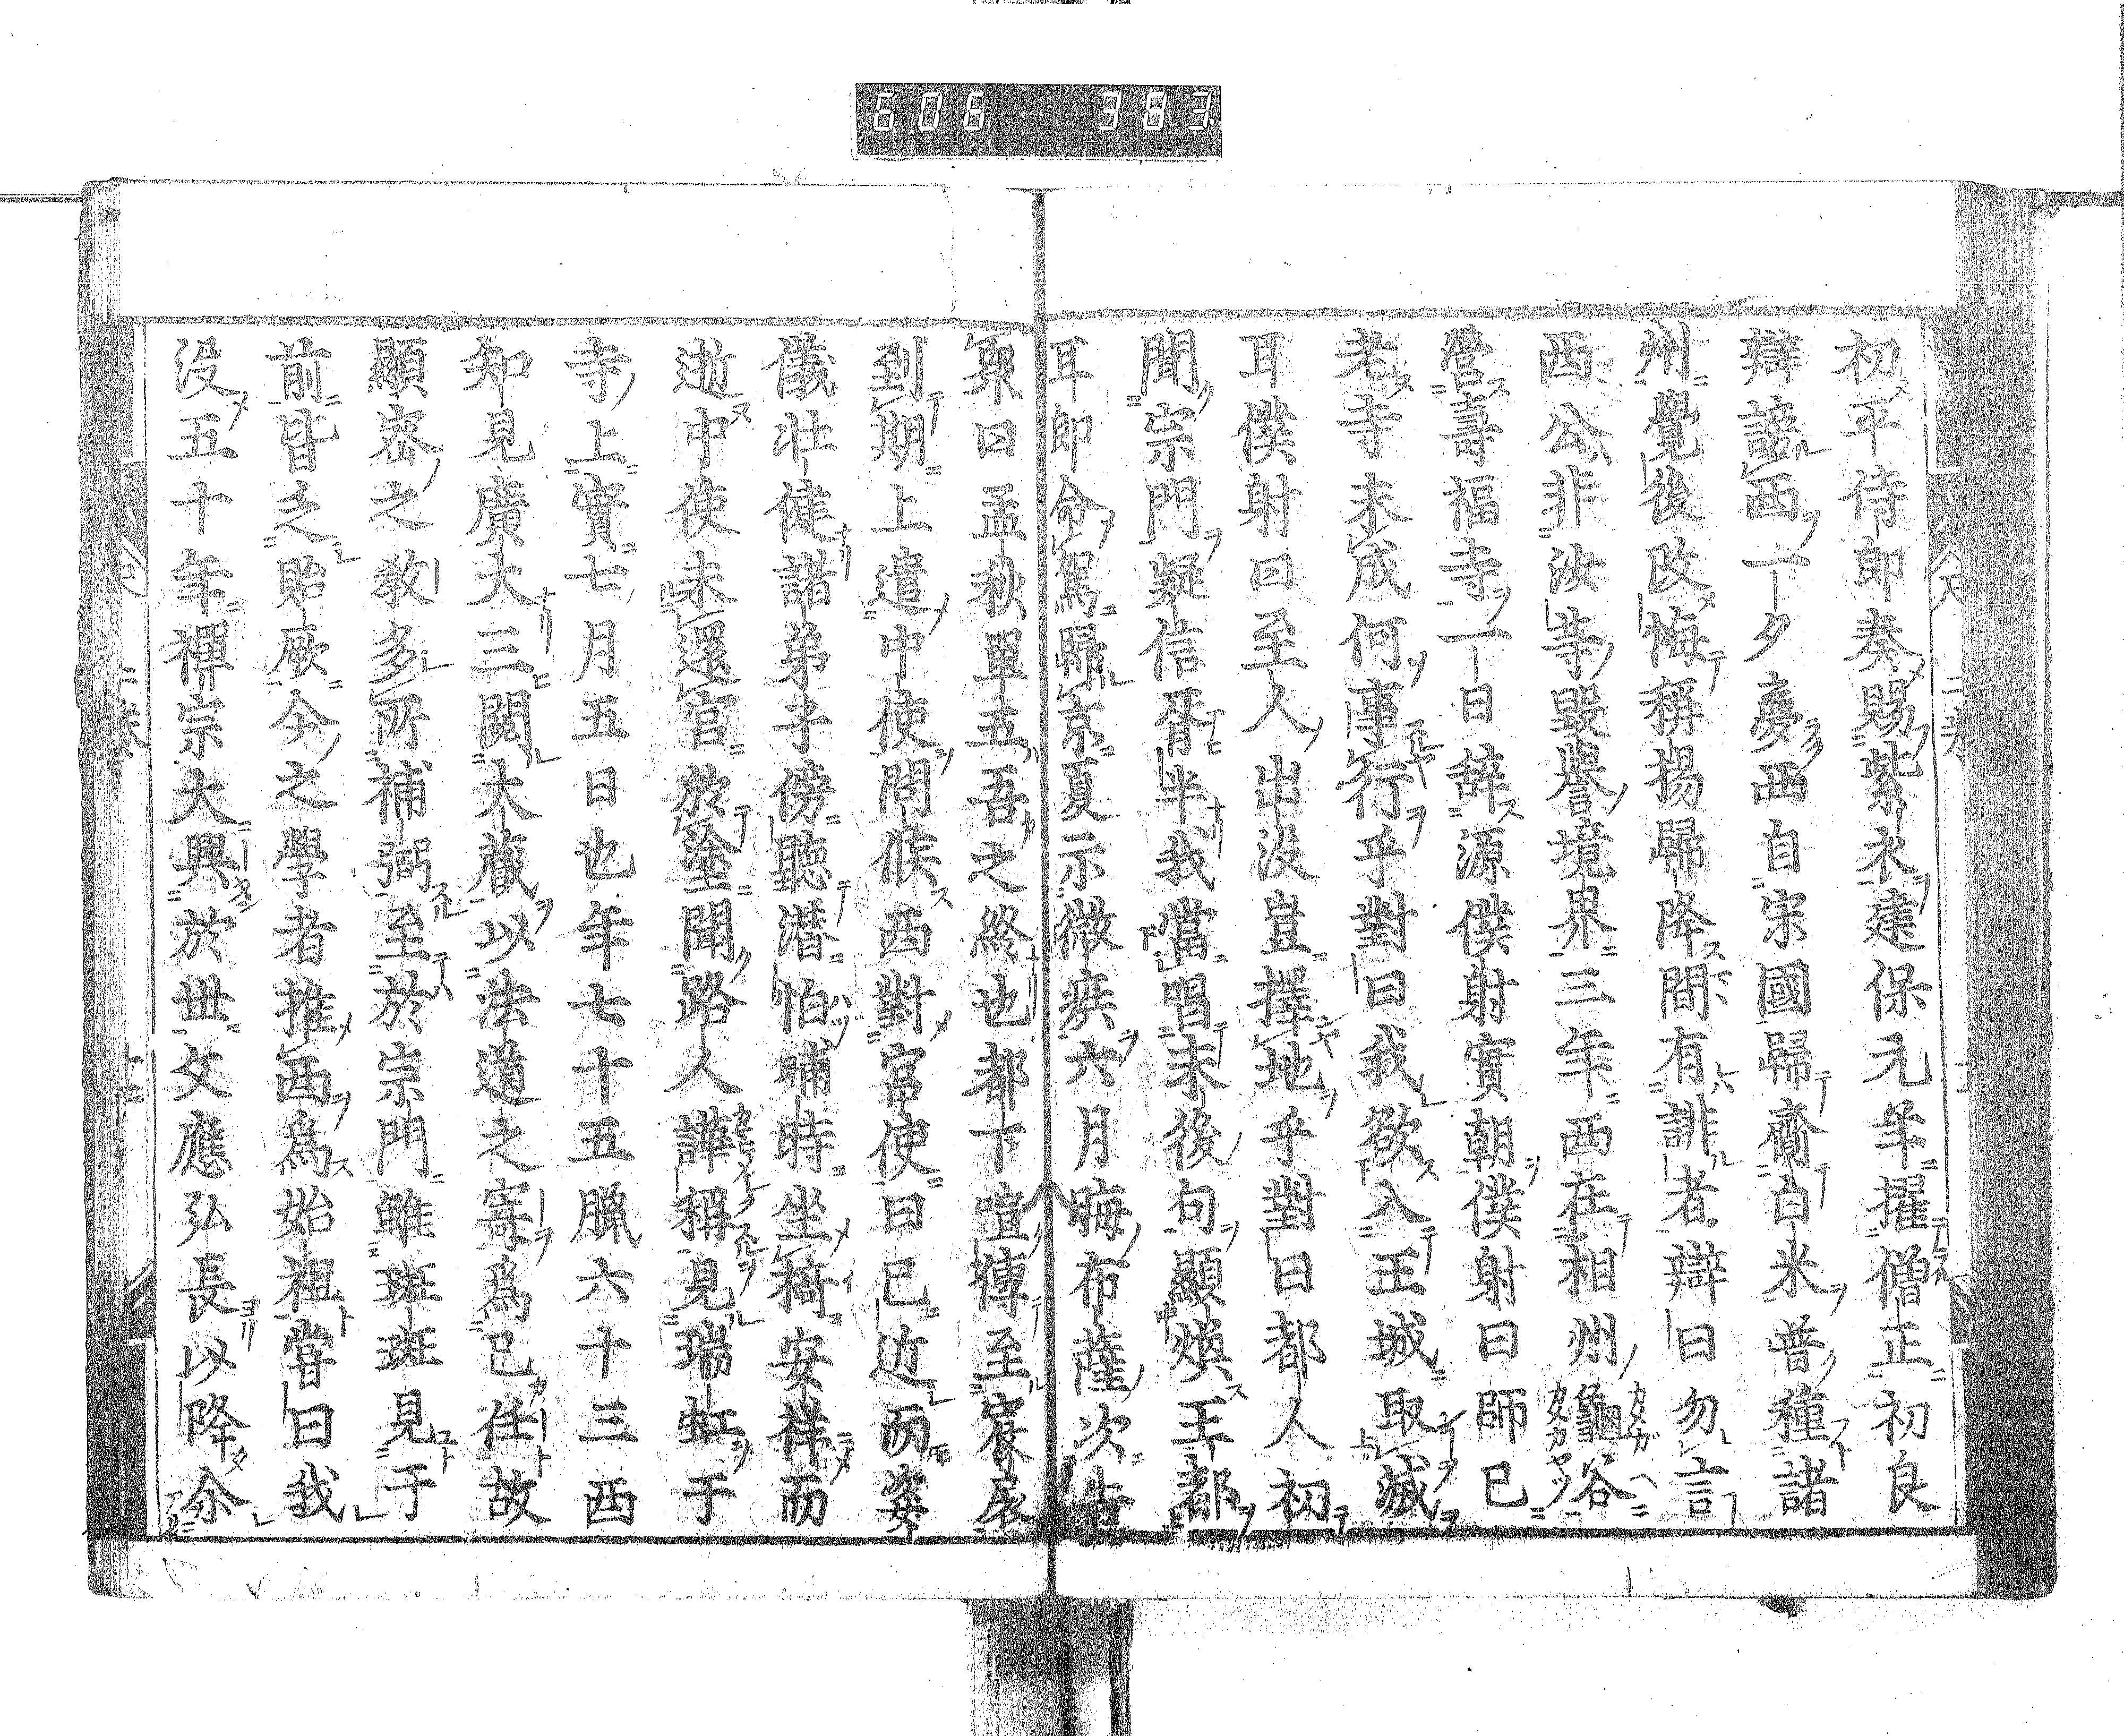 606 383
初平侍郎奏賜紫衣建保元年擢僧正初良
辯謗西一夕夢西自宋國歸齎白米普種諸
州覺後改悔稱揚歸降間有誹者辯曰勿言
西公非汝等毀譽境界三年西在相州龜谷
營壽福寺一日辭源僕射實朝僕射曰師已
老寺未成何事行乎對曰我欲入王城取滅
耳僕射曰至人出没豈擇地乎對曰都人初
聞宗門疑信胥半我當唱末後句顯煥王都
耳即命駕歸京夏示微疾六月晦布薩次告
衆曰孟秋單五吾之終也都下喧傳至宸扆
到期上遣中使問候西對宮使曰已近而姿
儀壯健諸弟子傍聽潛怕晡時坐椅安祥而
逝中使未還宮於塗聞路人譁稱見瑞虹于
寺上實七月五日也年七十五臘六十三西
知見廣大三閱大藏以法道之寄爲己任故
顯密之教多所補弼至於宗門雖斑斑見于
前皆乏貽厥今之學者推西爲始祖嘗曰我
没五十年禪宗大興於世文應弘長以降余